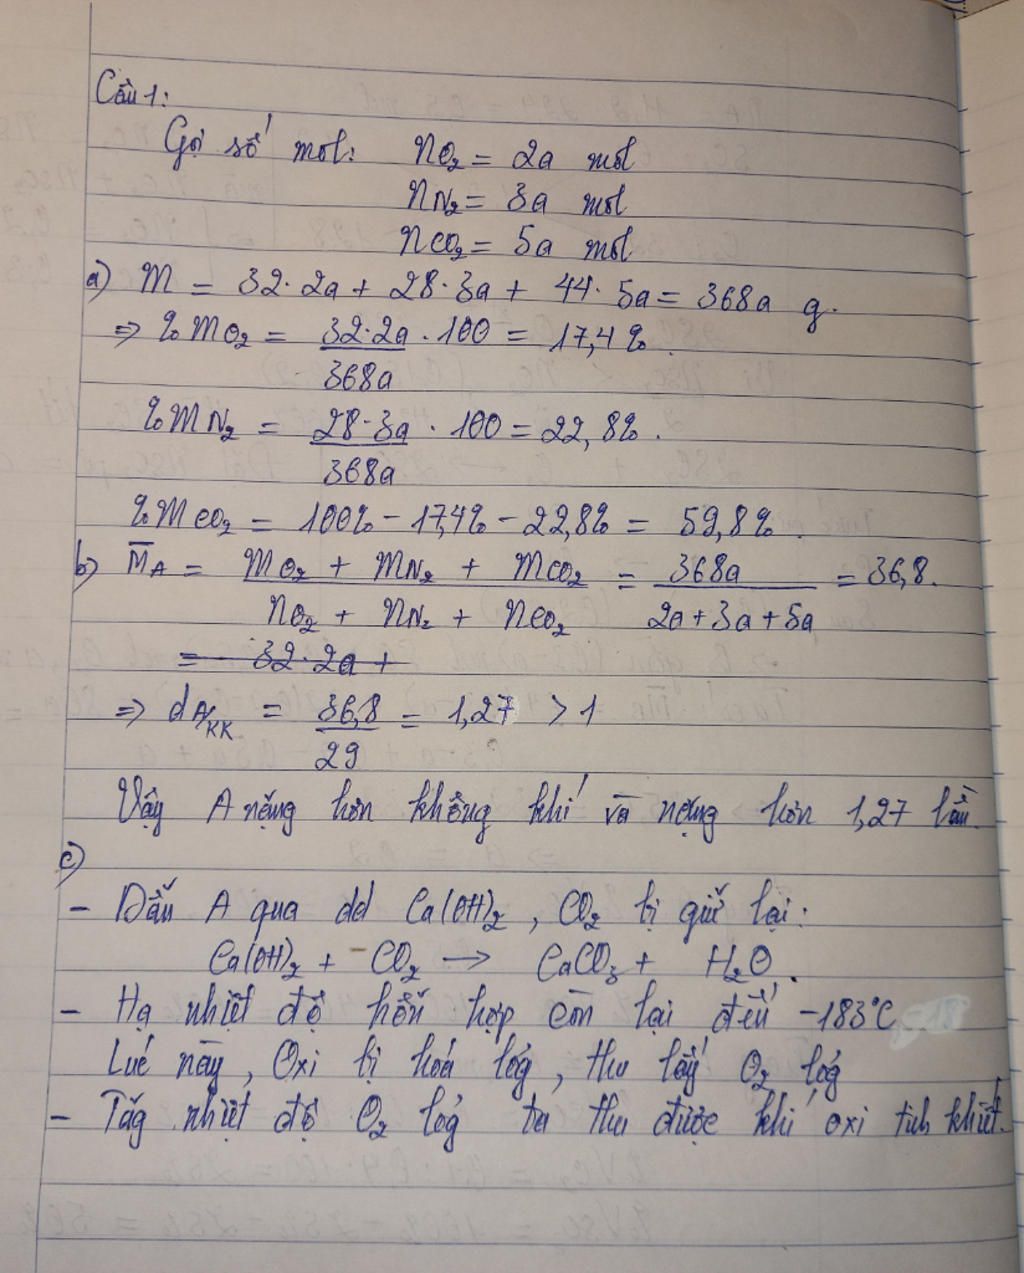 Câu 1:
Gọi số mol: nO₂ = 2a mol
nN₂ = 3a mol
nCO₂ = 5a mol
a) m = 32.2a + 28.3a + 44.5a = 368a g.
=> %mO₂ = 32.2a/368a . 100 = 17,4%.
%mN₂ = 28.3a/368a . 100 = 22,8%.
%mCO₂ = 100% - 17,4% - 22,8% = 59,8%.
b) M̄A = mO₂ + mN₂ + mCO₂/nO₂ + nN₂ + nCO₂ = 368a/2a + 3a + 5a = 36,8.
= 32.2a +
=> dA/KK = 36,8/29 = 1,27 > 1
Vậy A nặng hơn không khí và nặng hơn 1,27 lần.
c)
- Dẫn A qua dd Ca(OH)₂, CO₂ bị giữ lại:
Ca(OH)₂ + CO₂ → CaCO₃ + H₂O.
- Hạ nhiệt độ hỗn hợp còn lại đến -183°C
Lúc này, Oxi bị hoá lỏg, thu lấy O₂ lỏg
- Tăg nhiệt độ O₂ lỏg ta thu được khí oxi tinh khiết.